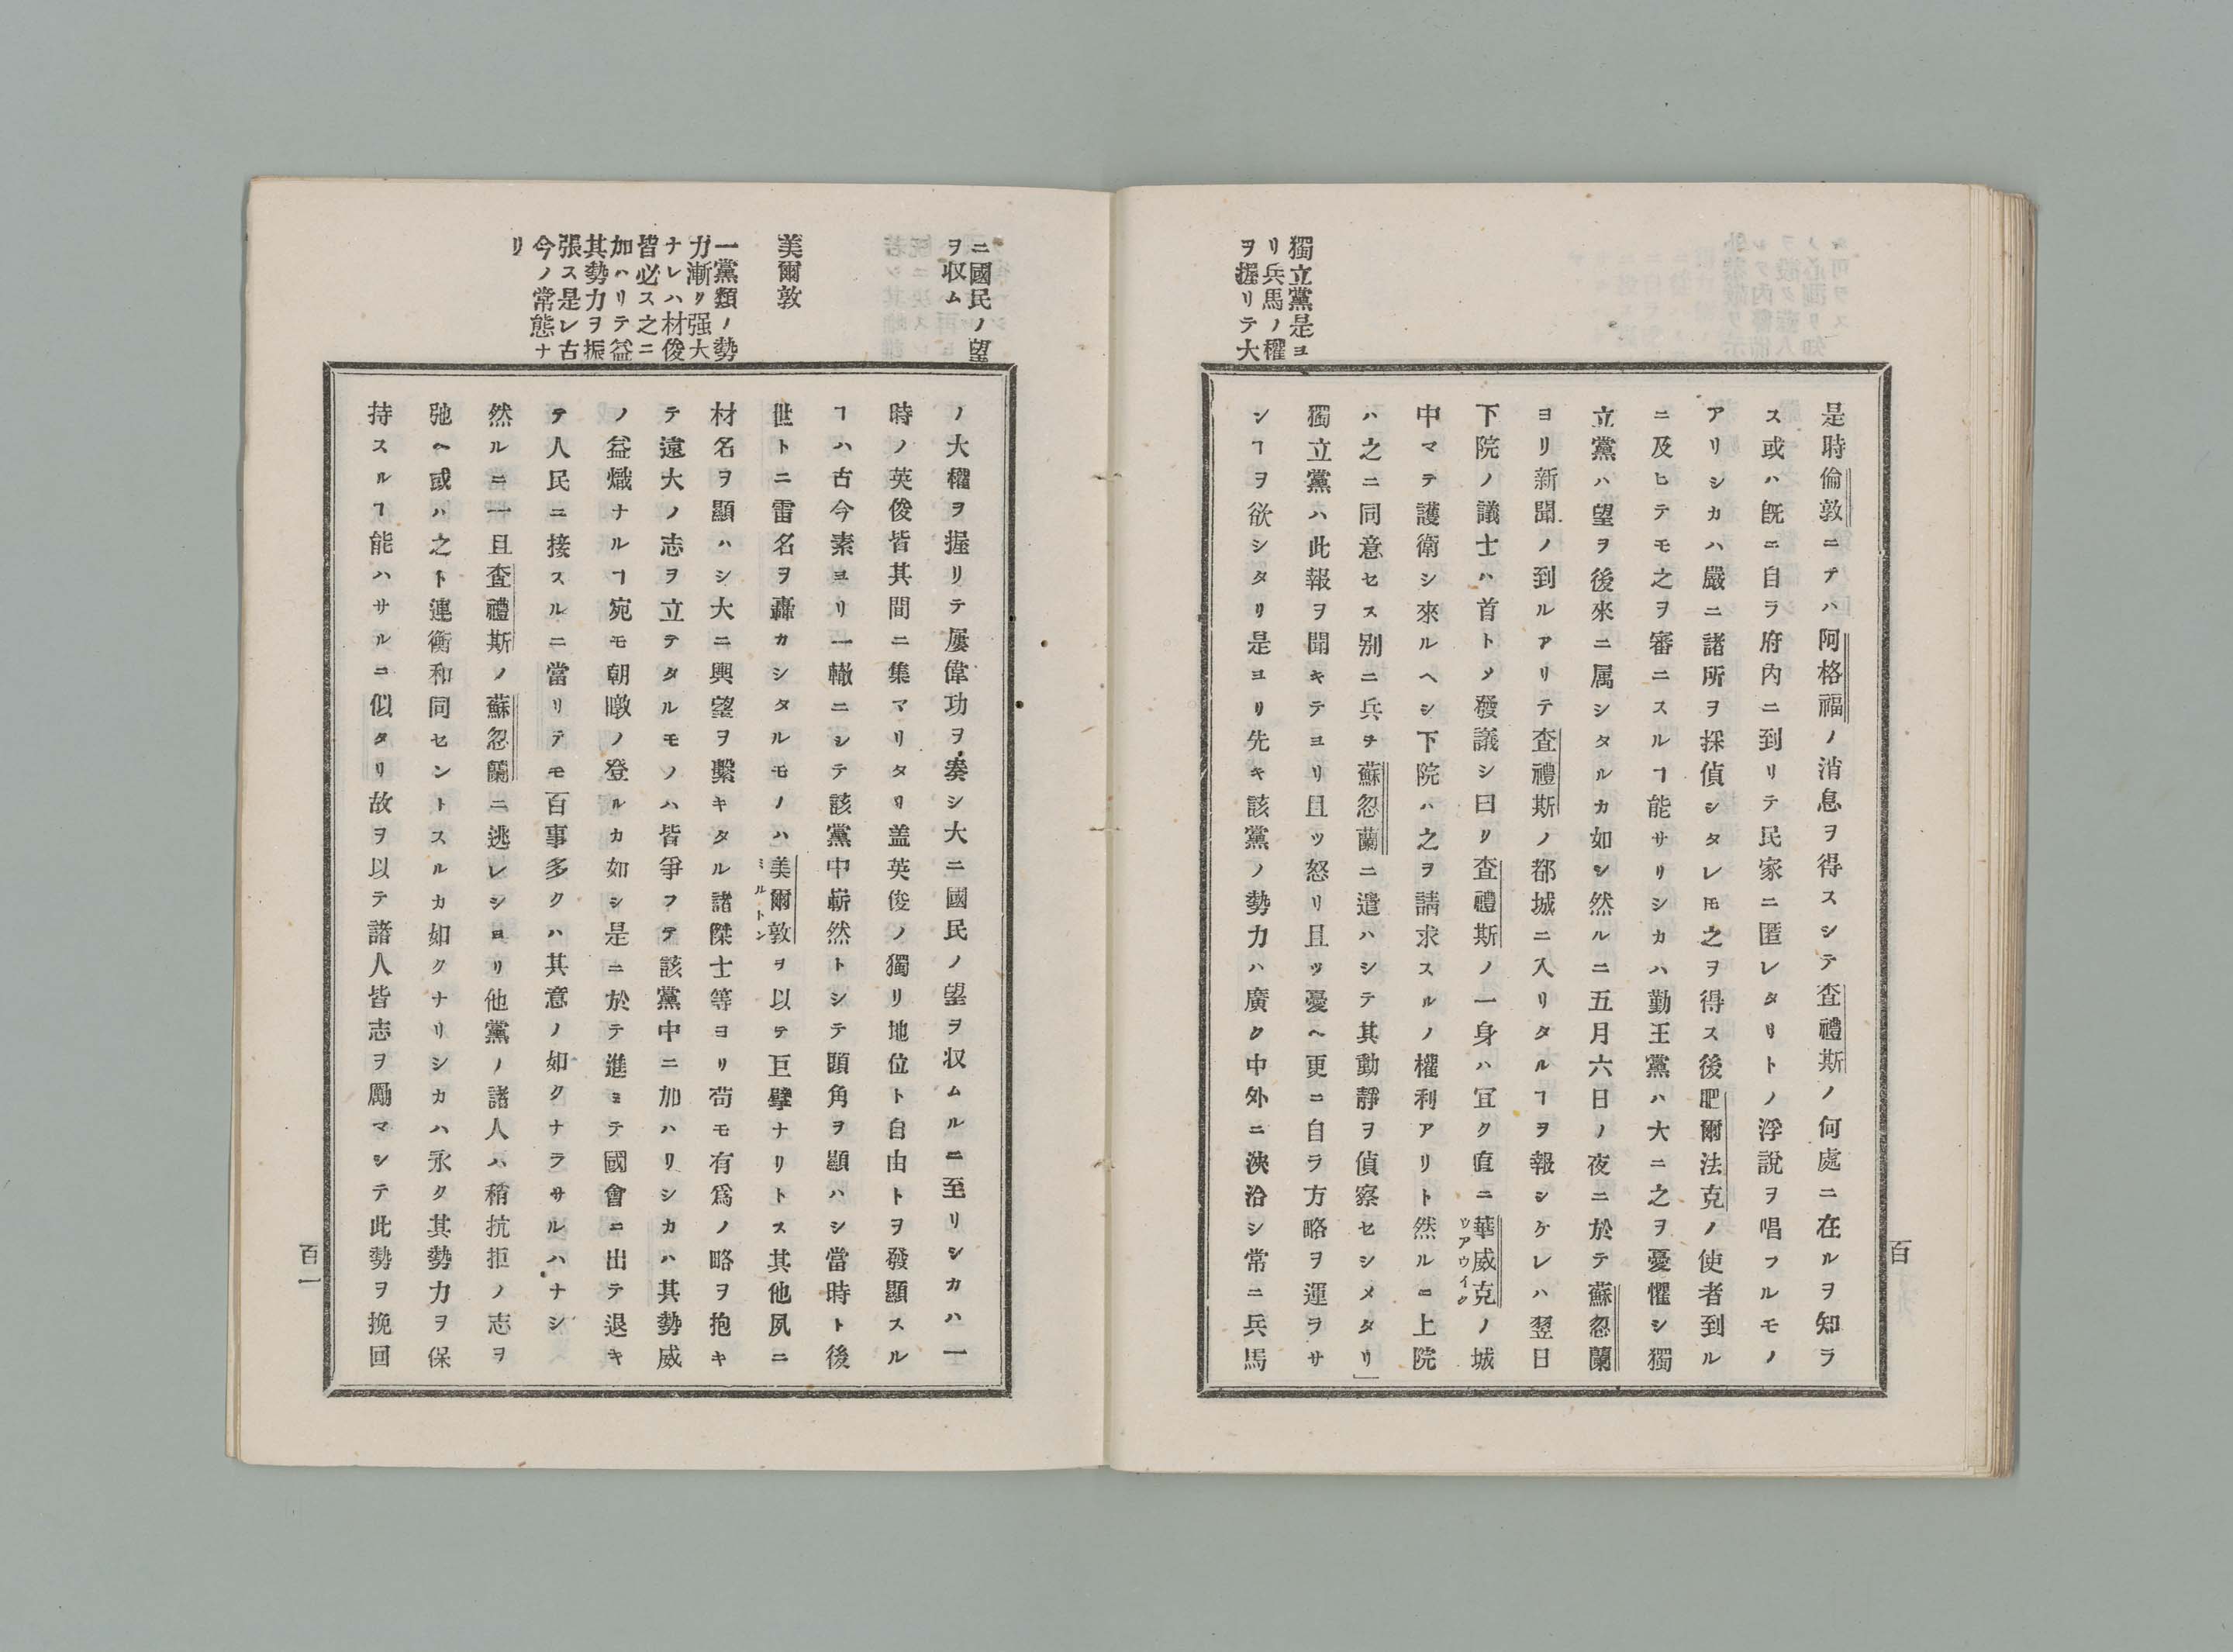 獨立黨是ヨ
リ兵馬ノ權
ヲ握リテ大
是時倫敦ニテハ阿格福ノ消息ヲ得スシテ査禮斯ノ何處ニ在ルヲ知ラ
ス或ハ旣ニ自ラ府內ニ到リテ民家ニ匿レタリトノ浮說ヲ唱フルモノ
アリシカハ嚴ニ諸所ヲ採偵シタレ𪜈之ヲ得ス後肥爾法克ノ使者到ル
ニ及ヒテモ之ヲ審ニスルヿ能サリシカハ勤王黨ハ大ニ之ヲ憂懼シ獨
立黨ハ望ヲ後來ニ属シタルカ如シ然ルニ五月六日ノ夜ニ於テ蘇忽蘭
ヨリ新聞ノ到ルアリテ査禮斯ノ都城ニ入リタルヿヲ報シケレハ翌日
下院ノ議士ハ首トメ發議シ曰リ査禮斯ノ一身ハ宜ク直ニ華威克ノ城
ウアウイク
中マテ護衛シ來ルヘシ下院ハ之ヲ請求スルノ權利アリト然ルニ上院
ハ之ニ同意セス別ニ兵チ蘇忽蘭ニ遣ハシテ其動靜ヲ偵察セシメタリ」
獨立黨ハ此報ヲ聞キテヨリ且ツ怒リ且ツ憂ヘ更ニ自ラ方略ヲ運ラサ
シヿヲ欲シタリ是ヨリ先キ該黨ノ勢力ハ廣ク中外ニ浹洽シ常ニ兵馬
百
ニ國民ノ望
ヲ収ム
美爾敦
一黨類ノ勢
力漸ク强大
ナレハ材俊
皆必ス之ニ
加ハリテ益
其勢力ヲ振
張ス是レ古
今ノ常態ナ
リ
ノ大權ヲ握リテ屢偉功ヲ奏シ大ニ國民ノ望ヲ収ムルニ至リシカハ一
時ノ英俊皆其間ニ集マリタリ盖英俊ノ獨リ地位ト自由トヲ發顯スル
ヿハ古今素ヨリ一轍ニシテ該黨中嶄然トシテ頭角ヲ顯ハシ當時ト後
世トニ雷名ヲ轟カシタルモノハ美爾敦ヲ以テ巨擘ナリトス其他夙ニ
ミルトン
材名ヲ顯ハシ大ニ興望ヲ繫キタル諸傑士等ヨリ苟モ有爲ノ略ヲ抱キ
テ遠大ノ志ヲ立テタルモノハ皆爭フテ該黨中ニ加ハリシカハ其勢威
ノ益熾ナルヿ宛モ朝暾ノ登ルカ如シ是ニ於テ進ミテ國會ニ出テ退キ
テ人民ニ接スルニ當リテモ百事多クハ其意ノ如クナラサルハナシ
然ルニ一且査禮斯ノ蘇忽蘭ニ逃レシヨリ他黨ノ諸人ハ稍抗拒ノ志ヲ
弛ヘ或ハ之ト連衡和同セントスルカ如クナリシカハ永ク其勢力ヲ保
持スルヿ能ハサルニ似タリ故ヲ以テ諸人皆志ヲ勵マシテ此勢ヲ挽回
百一